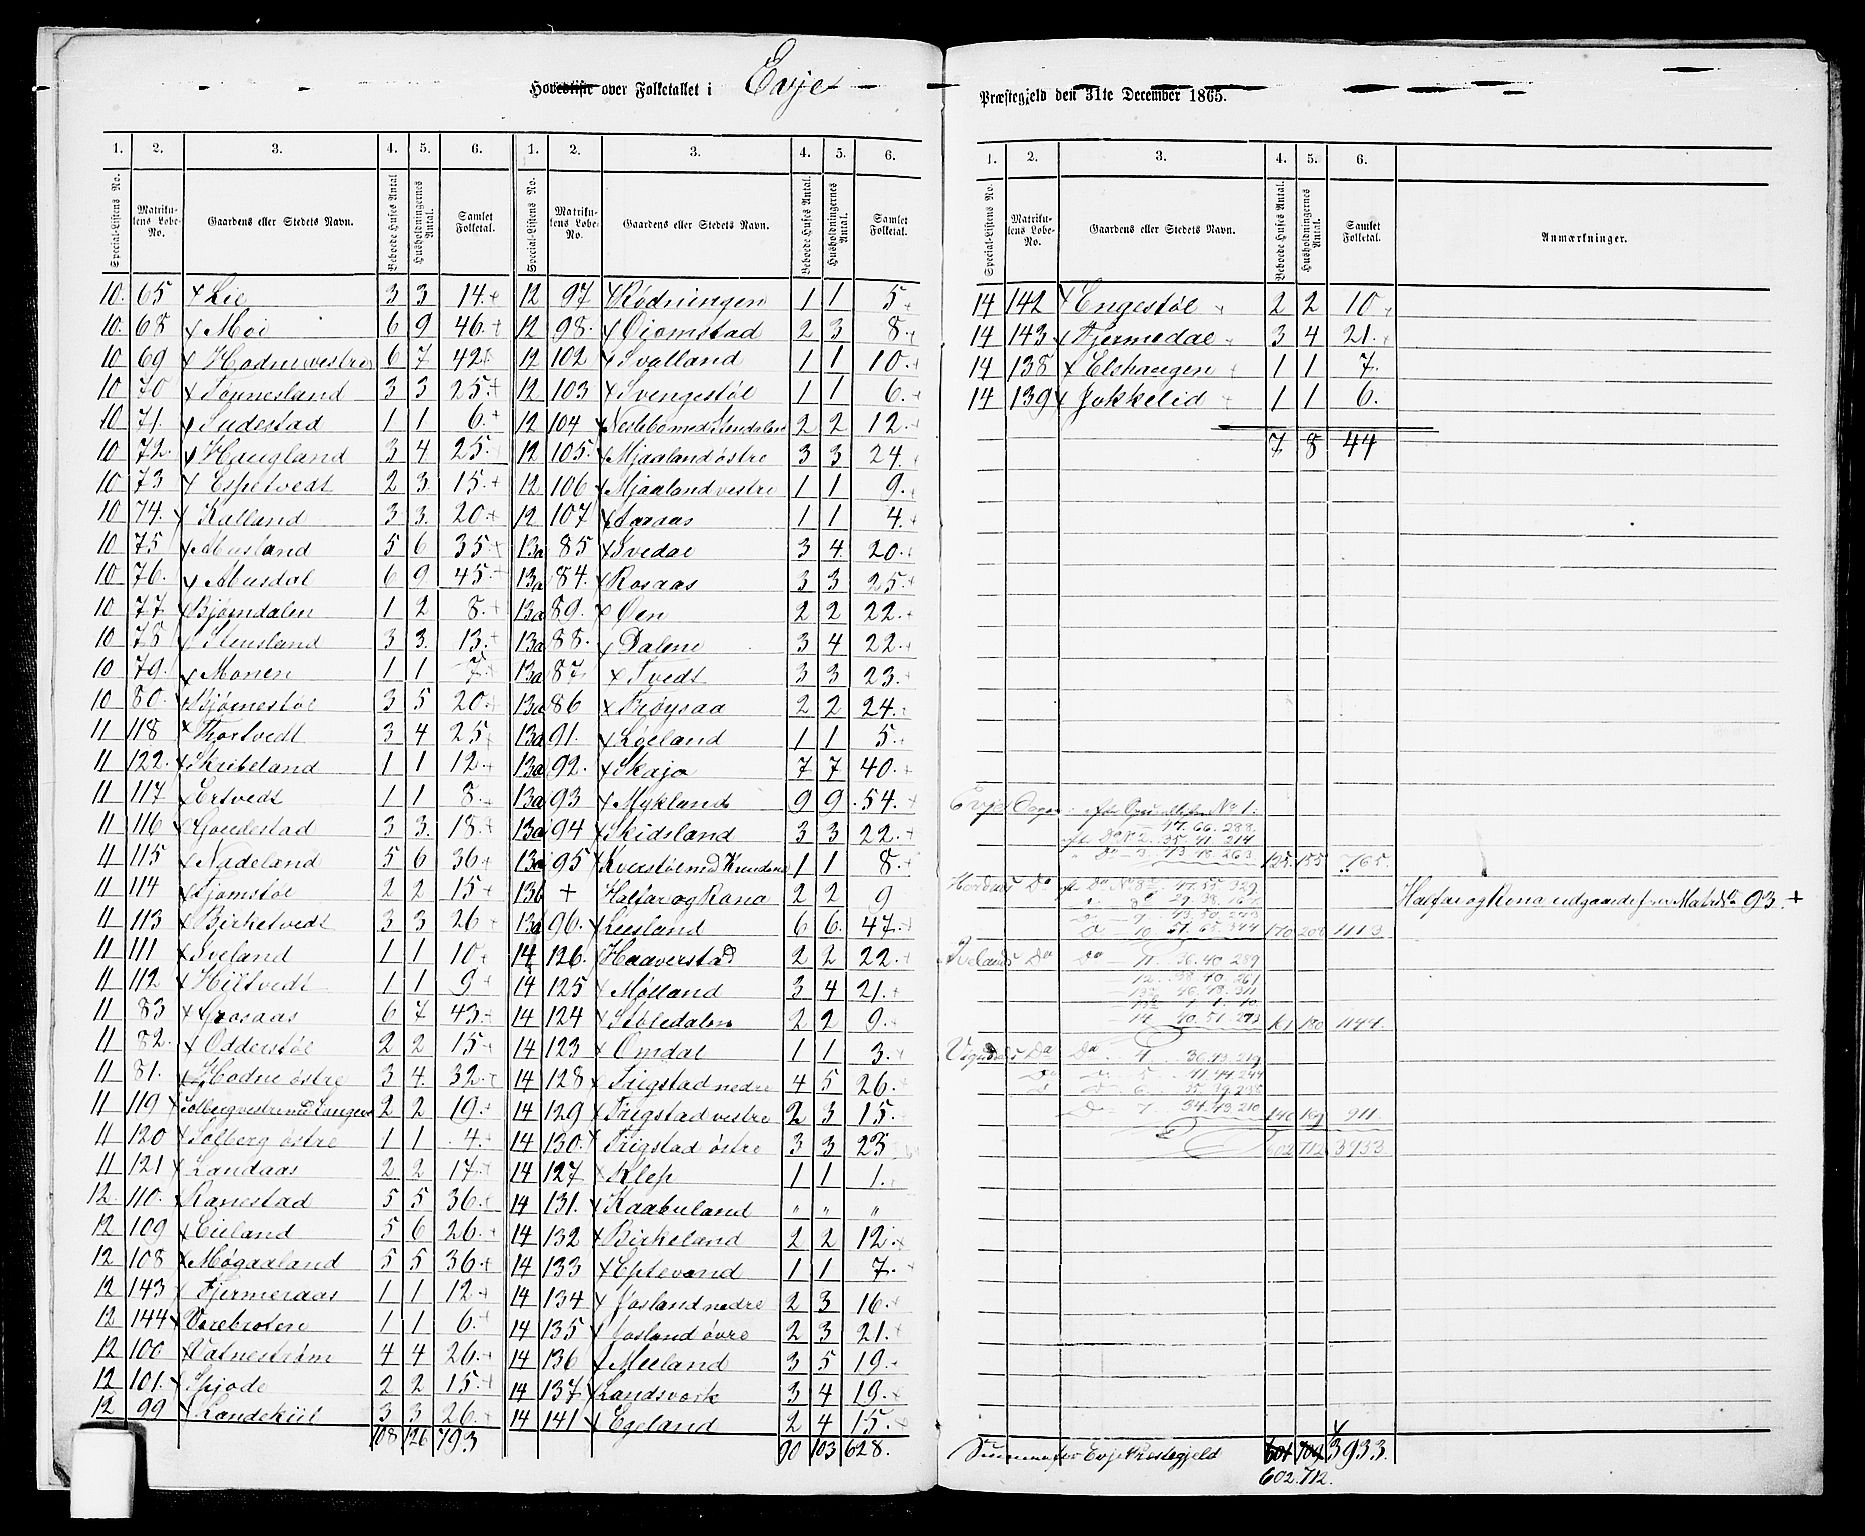 Hovedliste over Folketallet i Evje
1. 2. 3. 4. 5. 6. 1. 2. 3. 4. 5. 6.
Special-Listens No. Matrikulens Løbe-No. Gaardens eller Stedets Navn. Beboede Huses Antal Husholdningernes Antal. Samlet Folketal. Special-Listens No. Matrikulens Løbe-No. Gaardens eller Stedets Navn. Beboede Huses Antal. Husholdningernes Antal. Samlet Folketal.
10. 65 x Lie 3 3 14.+ 12 97 x Rødningen 1 1 5+
10. 68 x Moi 6 9 46.+ 12 98. x Oiomstad 2 3 8.+
10 69 x Hodne vestre 6 7 42+ 12 102 x Svalland 1 1 10.+
10 70 x Tønnesland 3 3 25+ 12 103 x Svengestøl 1 1 6.+
10 71. x Sudestad 1 1 6.+ 12 104 x 2 2 12.+
10 72. x Haugland 3 4 25.+ 12 105. x Mjaaland østre 3 3 24.+
10 73 x Espetvedt 2 3. 15.+ 12 106 x Mjaaland vestre 1 1 9.+
10 74. x Kalland 3 3. 20.+ 12 107 x Aaraas 1 1 4.+
10 75 x Abusland 5 6 35.+ 13a 85 x Svedal 3 4. 20.+
10 76. x Ausdal 6 9 45.+ 13a 84. x Rosaas 3 3 25.+
10 77 x Bjørndalen 1 2 8.+ 13a 89. x Øen 2 2 22.+
10 78 x Stensland 3 3. 13.+ 13a 88. x Dalene 3 4 22.+
10 79. x Monen 1 1 7.+ 13a 87. x Tvedt 3 3 23.+
10 80. x Bjørnestøl 3 5 20.+ 13a 86 x Frøysaa 2 2 24.+
11 118 x Thortvedt 3 4 25+ 13a 91. x Løeland 1 1 5.+
11 122. x Skribeland 1 1 12.+ 13a 92. x Skajaa 7 7 40.+
11 117 x Ertvedt 1 1 8.+ 13a 93 x Mykland 9 9. 54.+
11 116 x Gaudestad 3 3. 18.+ 13a 94 x Skidsland 3 3 22.+
11 115 x Nadeland 5 6 36+ 13a 95 x 1 1 8.+
11 114 x 2 2 15+ 13b + Halfar og Rona 2 2 9
11 113 x Birketvedt 3 3 26+ 13a 96. x Liesland 6 6. 47.+
11 111 x Iveland 1 1 10+ 14 126. x Haaverstad 2 2 22.+
11 112 x Hiltvedt 1 1 9+ 14 125 x Mølland 3 4 21.+
11 83 x Grosaas 6 7 43.+ 14 124 x Støledalen 2 2 9.+
11 82. x Odderstøl 2 2 15+ 14 123 x Omdal 1 1 3.+
11 81. x Hodne østre 3 4. 32.+ 14 128 x Frigstad nedre 4 5 26.+
11 119 x Solberg vestre med 2 2 19.+ 14 129 x Frigstad vestre 2 3 15.+
11 120 x Solberg østre 1 1 4.+ 14 130. x Frigstad østre 3 3 23
11 121 x Landaas 2 2 17.+ 14 127 x Klep 1 1 1.+
12. 110. x Ranestad 5 5 36.+ 14 131. x Kaabuland " " "
12. 109 x Eieland 5 6 26.+ 14 132 x Birkeland 2 2 12.+
12 108 x Møgaaland 5 5 36.+ 14 133 x Eptevand 1 1 7.+
12 143 x Fjermeraas 1 1 12+ 14 134 x Josland nedre 2 3 16.+
12 144 x Varebroten 1 1 6.+ 14 135 x Josland øvre 2 3 21.+
12 100 x Vatnestrøm 4 4 26.+ 14 136 x Meeland 3 5 19.+
12 101. x Spjode 2 2 15.+ 14 137 x Landsverk 3 4 19.+
12 99 x Landekiil 3 3 26.+ 14 141 x Egeland 2 4 15.+
108 126 793 90 103 628.
Præstegjeld den 31te December 1865.
1. 2. 3. 4. 5. 6.
Special-Listens No. Matrikulens Løbe-No. Gaardens eller Stedets Navn. Beboede Huses Antal. Husholdningernes Antal. Samlet Folketal. Anmærkninger.
14 142 x Engestøl 2 2 10+
14 143 x Fjermedal 3 4 21.+
14 138 x Elshaugen 1 1 7.
14 139 x Jokkelid 1 1 6.
7 8 44
Evje Sogn No 1. 47. 66. 288.
Do 2. 35. 41. 214
Do 3 43. 48. 263 125. 155 765.
Do No 8 47. 55. 329.
Halfar og Rona udgaaede fra Matr No 93. +
9 43. 50. 243
10 51. 65. 344 170 208 1113
Ivelands Do Do 11. 36. 40. 289
12. 38. 40. 261
46. 48. 311
1. 1. 10.
14 40. 51. 273 161 180 1144.
Do Do 4. 36. 43. 219
Do 5 41. 44. 244
Do 6 35. 39. 238
Do 7 34. 43. 210 146 169 911
602 712 3933
Summa for Evje Præstegjeld 601 704 3933.
602. 712.